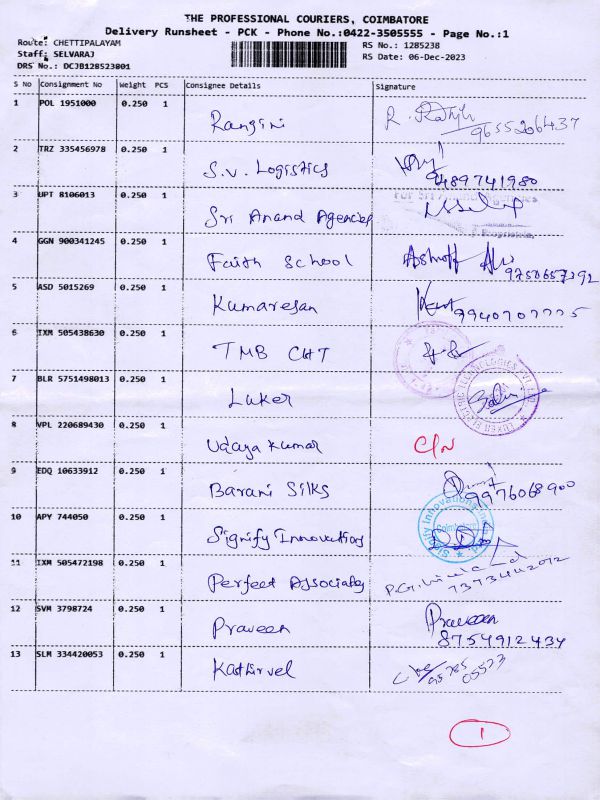 THE PROFESSIONAL COURIERS, COIMBATORE
Delivery Runsheet - PCK - Phone No.:0422-3505555 - Page No.:1
Route: CHETTIPALAYAM
Staff: SELVARAJ
DRS No.: DCJB128523801
RS No.: 1285238
RS Date: 06-Dec-2023
S No Consignment No Weight PCS Consignee Details Signature
1 POL 1951000 0.250 1 Rangini 9655206437
2 TRZ 335456978 0.250 1 S.V. Logistics 9489741980
3 UPT 8106013 0.250 1 Sri Anand Agencies
4 GGN 900341245 0.250 1 Faith School 9750657392
5 ASD 5015269 0.250 1 Kumaresan 9940707775
6 IXM 505438630 0.250 1 TMB CHT
7 BLR 5751498013 0.250 1 Luker
8 VPL 220689430 0.250 1 Udaya Kumar C/N
9 EDQ 10633912 0.250 1 Barani Silks 9976068900
10 APY 744050 0.250 1 Signify Innovations
11 IXM 505472198 0.250 1 Perfect Associates 7373442092
12 SVM 3798724 0.250 1 Praveen Praveen
8754912434
13 SLM 334420053 0.250 1 Kathirvel 95785
05573
1